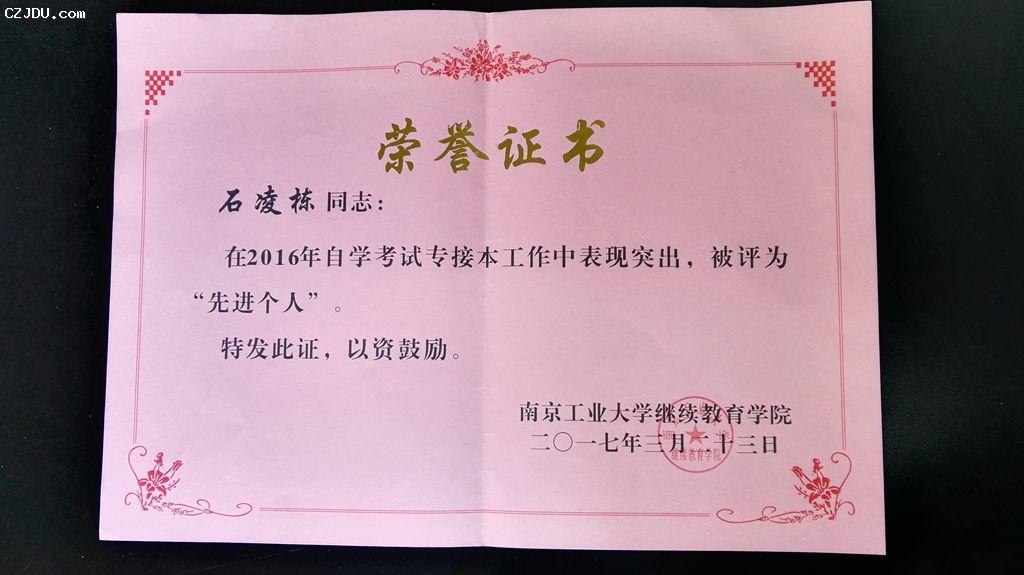 CZJDU.COM
荣誉证书
石凌栋同志：
在2016年自学考试专接本工作中表现突出，被评为
“先进个人”。
特发此证，以资鼓励。
南京工业大学继续教育学院
二〇一七年三月二十三日
继续教育学院